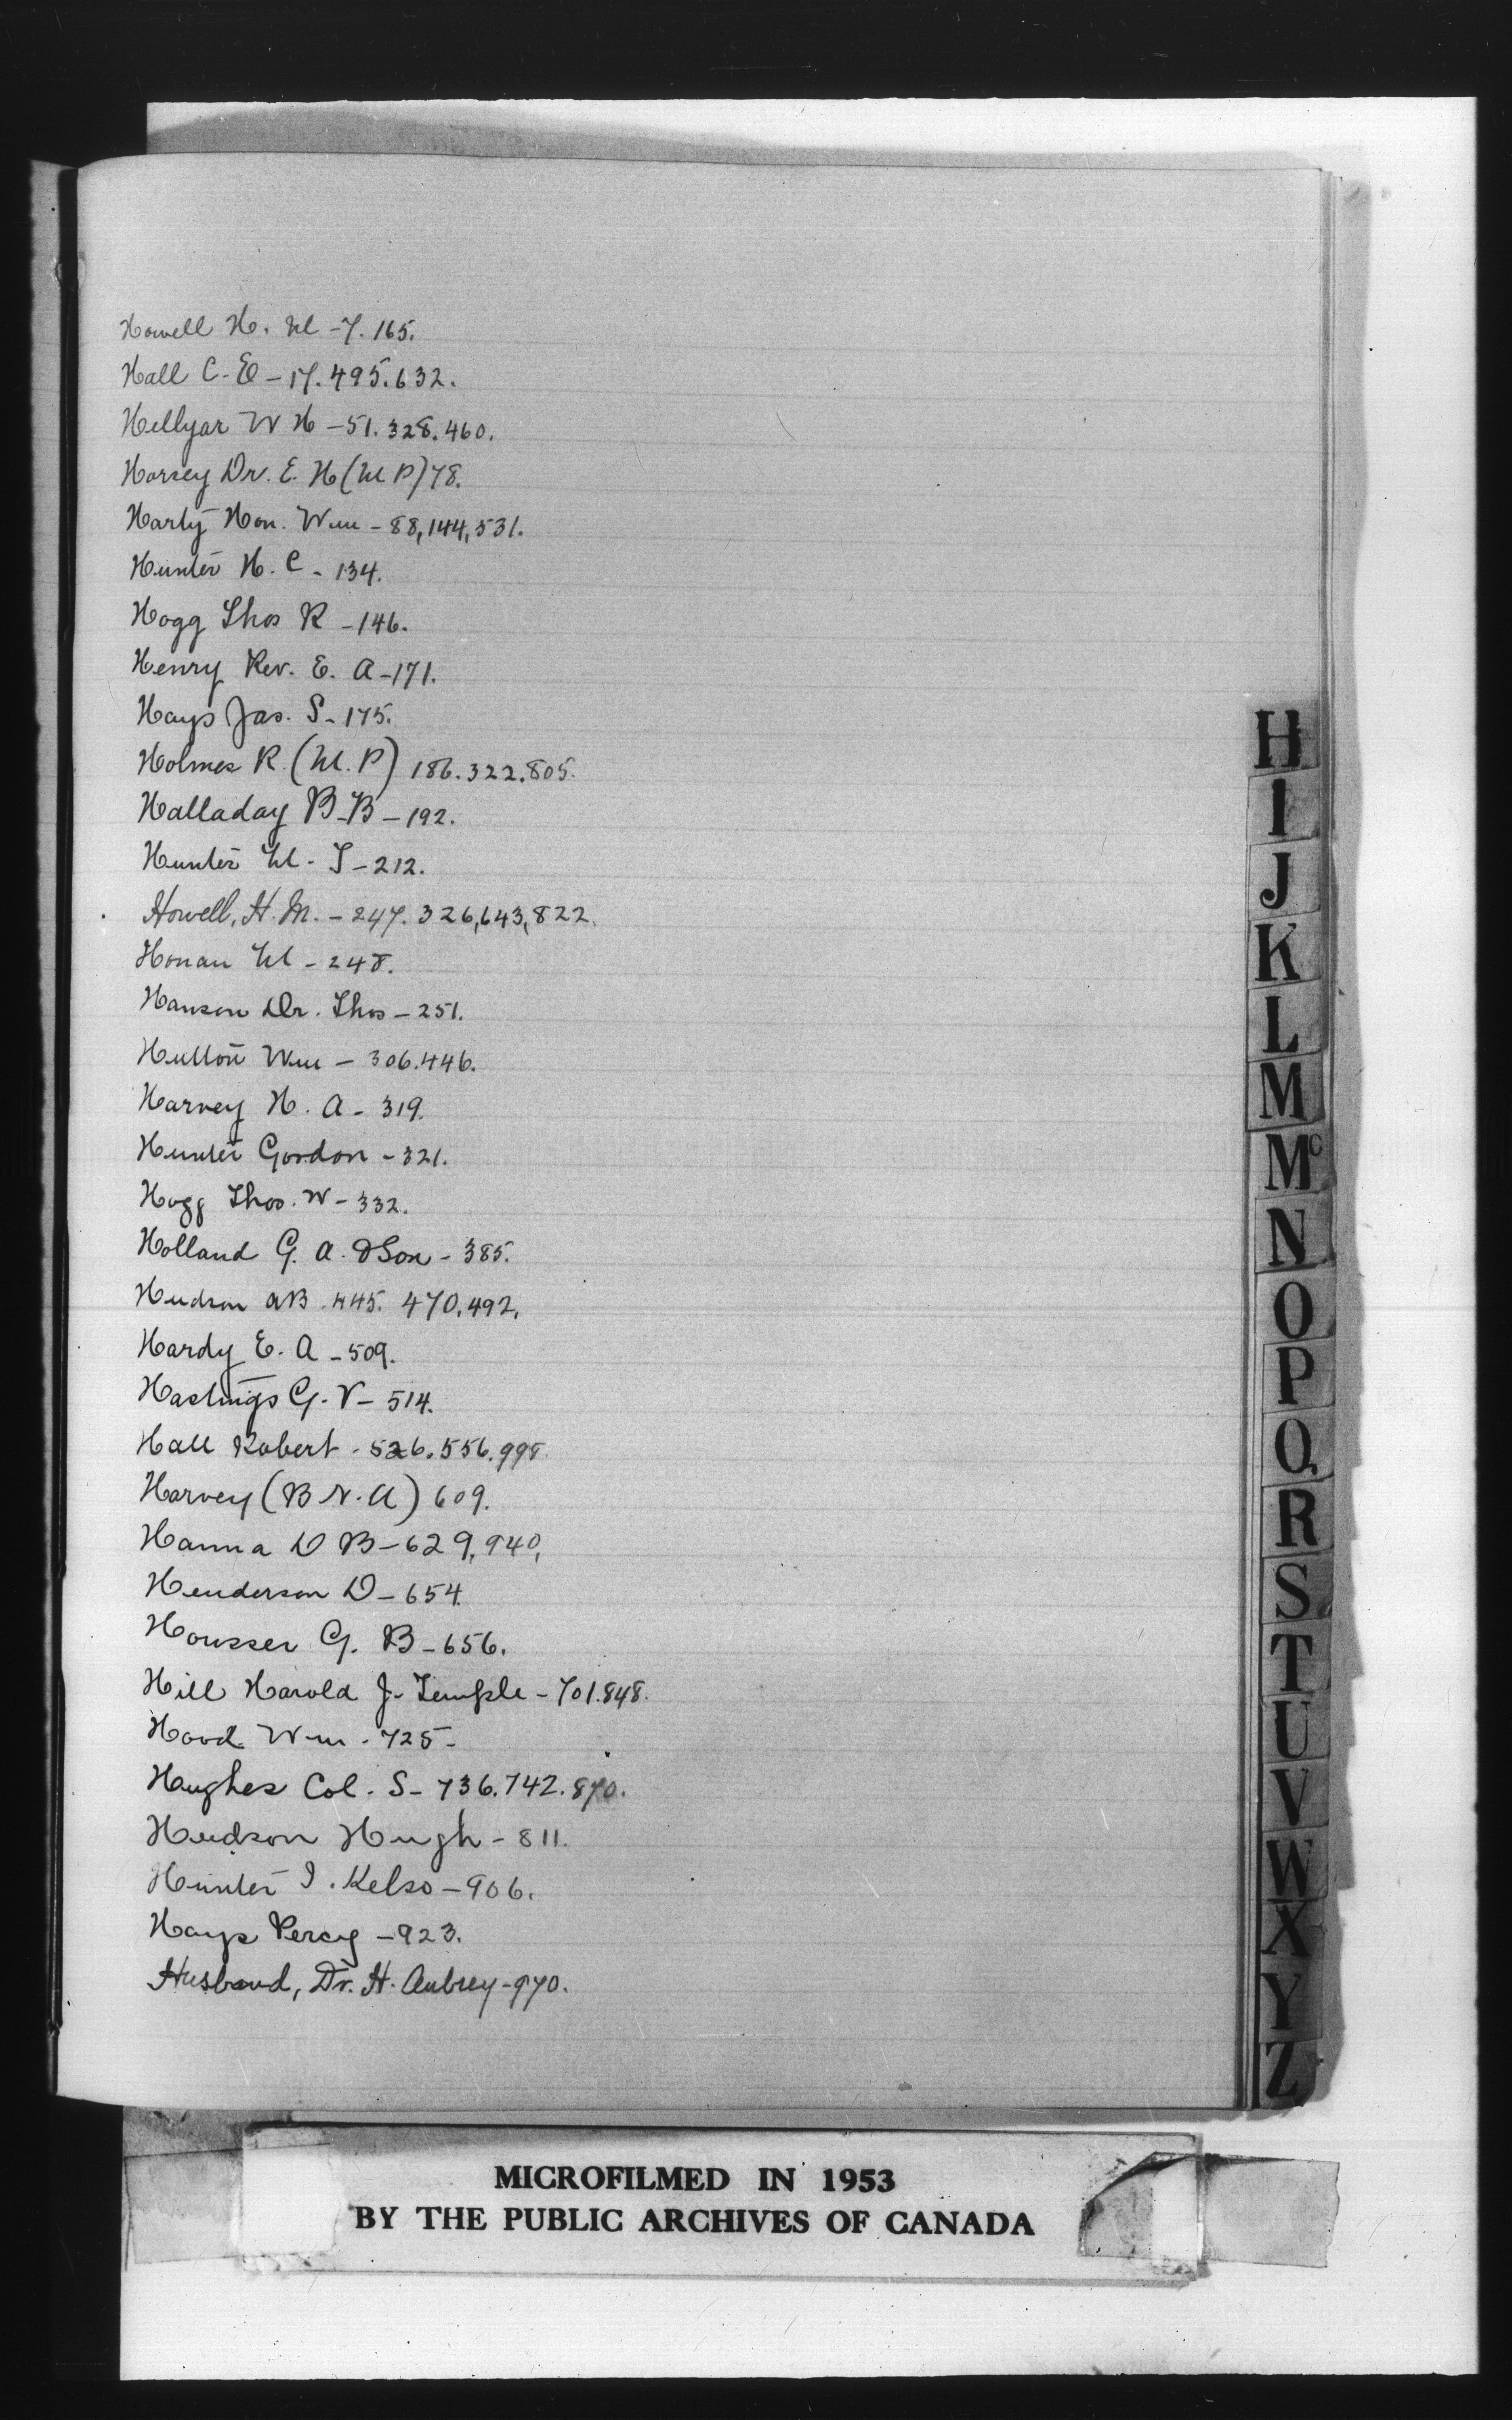 Howell H. M - 7. 165.
Hall C. E - 17. 495. 632.
Hellyar W H - 51. 328. 460.
Horsey Dr. E. H (M P) 78.
Harty Hon. Wm - 88, 144, 531.
Hunter H. C - 134.
Hogg Thos R - 146.
Henry Rev. E. A - 171.
Hays Jas. S - 175.
Holmes R. (M. P) 186. 322. 805.
Halladay B. B - 192.
Hunter M. T - 212.
Howell, H. M. - 247. 326, 643, 822.
Honan M - 248.
Hanson Dr. Thos - 251.
Hutton Wm - 306. 446.
Harvey H. A - 319.
Hunter Gordon - 321.
Hogg Thos. W - 332.
Holland G. A. & Son - 385.
Hudson A B . 445. 470. 492.
Hardy E. A - 509.
Hastings G. V - 514.
Hall Robert - 526. 556. 998.
Harvey (B N. A) 609.
Hanna D B - 629, 940,
Henderson D - 654.
Housser G. B - 656.
Hill Harold J. Temple - 701. 848.
Hood Wm - 725 -
Haughes Col. S - 736. 742. 870.
Hudson Hugh - 811.
Hunter I. Kelso - 906.
Hays Percy - 923.
Husband, Dr. H. Aubrey - 970.
H
I
J
K
L
M
Mc
N
O
P
Q
R
S
T
U
V
W
X
Y
Z
MICROFILMED IN 1953
BY THE PUBLIC ARCHIVES OF CANADA